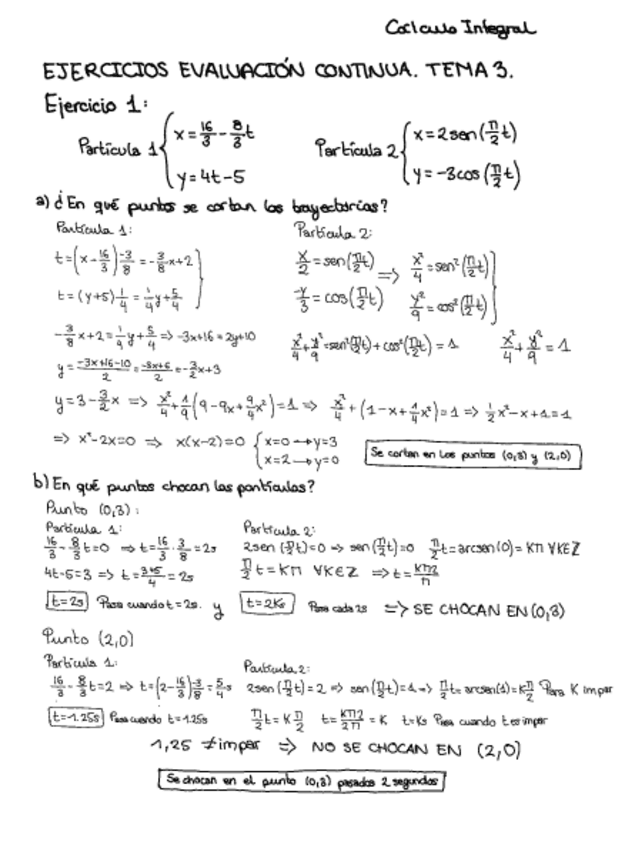 Cálculo Integral
EJERCICIOS EVALUACIÓN CONTINUA. TEMA 3.
Ejercicio 1:
Partícula 1 { x = 16/3 - 8/3 t
y = 4t - 5
Partícula 2 { x = 2sen(π/2 t)
y = -3cos(π/2 t)
a) ¿En qué puntos se cortan las trayectorias?
Partícula 1:
t = (x - 16/3) -3/8 = -3/8 x + 2
t = (y+5) 1/4 = 1/4 y + 5/4
-3/8 x + 2 = 1/4 y + 5/4 => -3x + 16 = 2y + 10
y = (-3x + 16 - 10)/2 = (-3x + 6)/2 = -3/2 x + 3
Partícula 2:
x/2 = sen(π/2 t) => x²/4 = sen²(π/2 t)
-y/3 = cos(π/2 t) y²/9 = cos²(π/2 t)
x²/4 + y²/9 = sen²(π/2 t) + cos²(π/2 t) = 1 x²/4 + y²/9 = 1
y = 3 - 3/2 x => x²/4 + 1/9 (9 - 9x + 9/4 x²) = 1 => x²/4 + (1 - x + 1/4 x²) = 1 => 1/2 x² - x + 1 = 1
=> x² - 2x = 0 => x(x-2) = 0 { x = 0 → y = 3
x = 2 → y = 0
Se cortan en los puntos (0,3) y (2,0)
b) En qué puntos chocan las partículas?
Punto (0,3):
Partícula 1:
16/3 - 8/3 t = 0 => t = 16/3 · 3/8 = 2s
4t - 5 = 3 => t = (3+5)/4 = 2s
t = 2s Pasa cuando t = 2s. y
Partícula 2:
2sen(π/2 t) = 0 => sen(π/2 t) = 0 π/2 t = arcsen(0) = Kπ ∀K∈Z
π/2 t = Kπ ∀K∈Z => t = Kπ2/π
t = 2Ks Pasa cada 2s => SE CHOCAN EN (0,3)
Punto (2,0)
Partícula 1:
16/3 - 8/3 t = 2 => t = (2 - 16/3) -3/8 = 5/4 s
t = 1.25s Pasa cuando t = 1.25s
Partícula 2:
2sen(π/2 t) = 2 => sen(π/2 t) = 1 => π/2 t = arcsen(1) = K π/2 Para K impar
π/2 t = K π/2 t = Kπ2/2π = K t = Ks Pasa cuando t es impar
1,25 ≠ impar => NO SE CHOCAN EN (2,0)
Se chocan en el punto (0,3) pasados 2 segundos